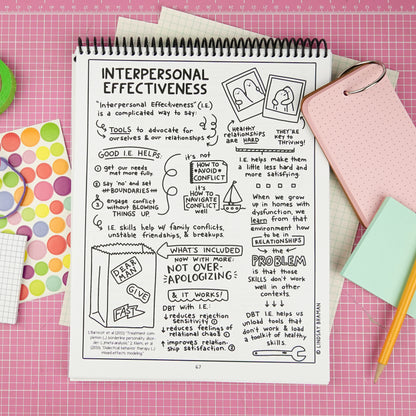 INTERPERSONAL
EFFECTIVENESS
"Interpersonal Effectiveness" (I.E.)
is a complicated way to say:
TOOLS to advocate for
ourselves & our relationships
Healthy
relationships
are HARD
THEY'RE
KEY to
THRIVING!
GOOD I.E. HELPS:
1 get our needs
met more fully.
2 say 'no' and set
"BOUNDARIES"
3 engage conflict
without BLOWING
THINGS UP.
it's not
HOW TO
AVOID
CONFLICT
it's
HOW TO
NAVIGATE
CONFLICT
well
I.E. help makes them
a little less hard and
more satisfying
I.E. skills help w/ family conflicts,
unstable friendships, & breakups.
When we grow
up in homes with
dysfunction, we
learn from that
environment how
to be in
RELATIONSHIPS
the
PROBLEM
is that those
SKILLS don't work
well in other
contexts.
DBT I.E. helps us
unload tools that
don't work & load
a toolkit of healthy
skills.
WHAT'S INCLUDED
NOW WITH MORE
NOT OVER-
APOLOGIZING
& IT WORKS!
DBT with I.E.:
reduces rejection
sensitivity 1
reduces feelings of
relational chaos 1
improves relation-
ship satisfaction. 2
DEAR
MAN
GIVE
FAST
67
© LINDSAY BRAMAN